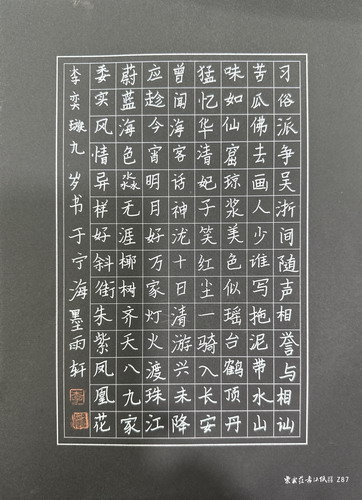 习俗派争吴浙间随声相誉与相讪
苦瓜佛去画人少谁写拖泥带水山
味如仙窟琼浆美色似瑶台鹤顶丹
猛忆华清妃子笑红尘一骑入长安
曾闻海客话神泷十日清游兴未降
应趁今宵明月好万家灯火渡珠江
蔚蓝海色淼无涯椰树齐天八九家
委实风情异样好斜街朱紫凤凰花
李奕璇九岁书于宁海墨雨轩
287